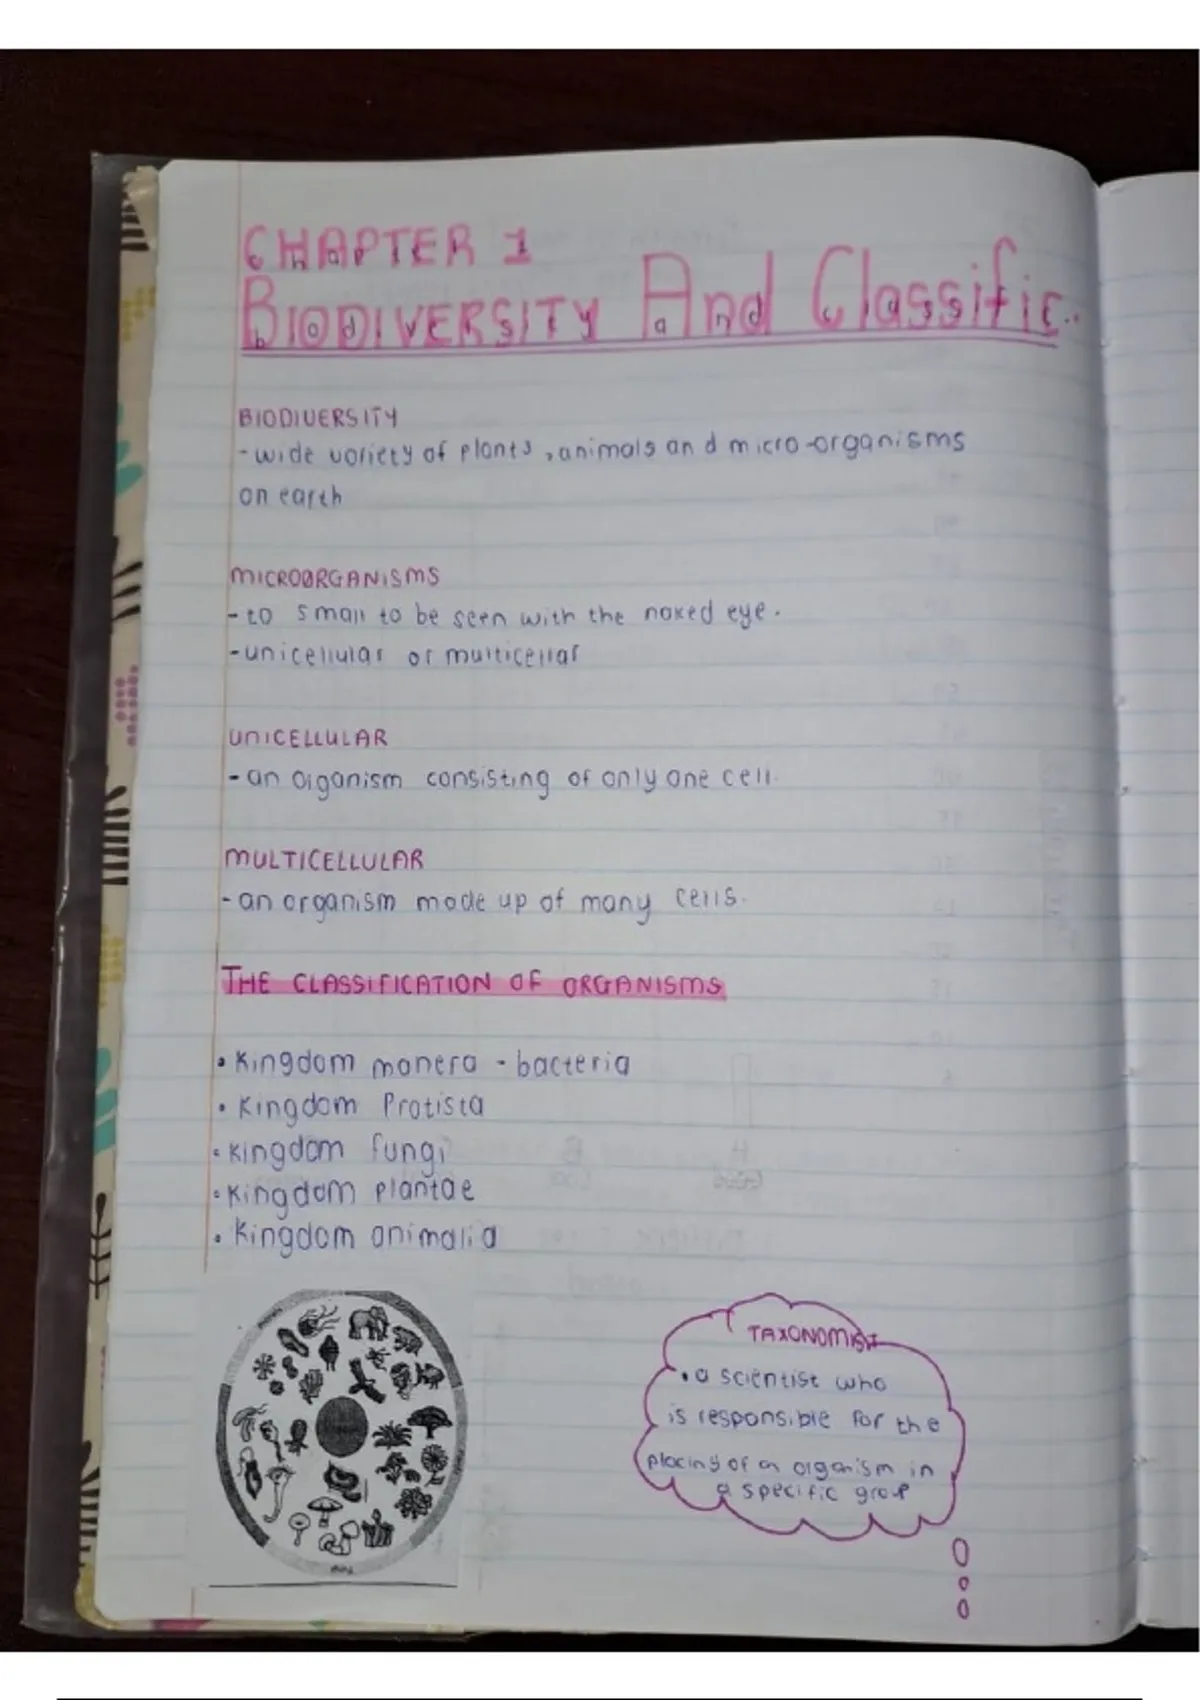 CHAPTER 1
BIODIVERSITY And Classific..
BIODIVERSITY
- wide variety of plants, animals and micro-organisms
on earth
MICROORGANISMS
- to small to be seen with the naked eye.
- unicellular or multicellar
UNICELLULAR
- an organism consisting of only one cell.
MULTICELLULAR
- an organism made up of many cells.
THE CLASSIFICATION OF ORGANISMS
• Kingdom monera - bacteria
• Kingdom Protista
• Kingdom fungi
• Kingdom plantae
• Kingdom animalia
TAXONOMIST
• a scientist who
is responsible for the
placing of an organism in
a specific group